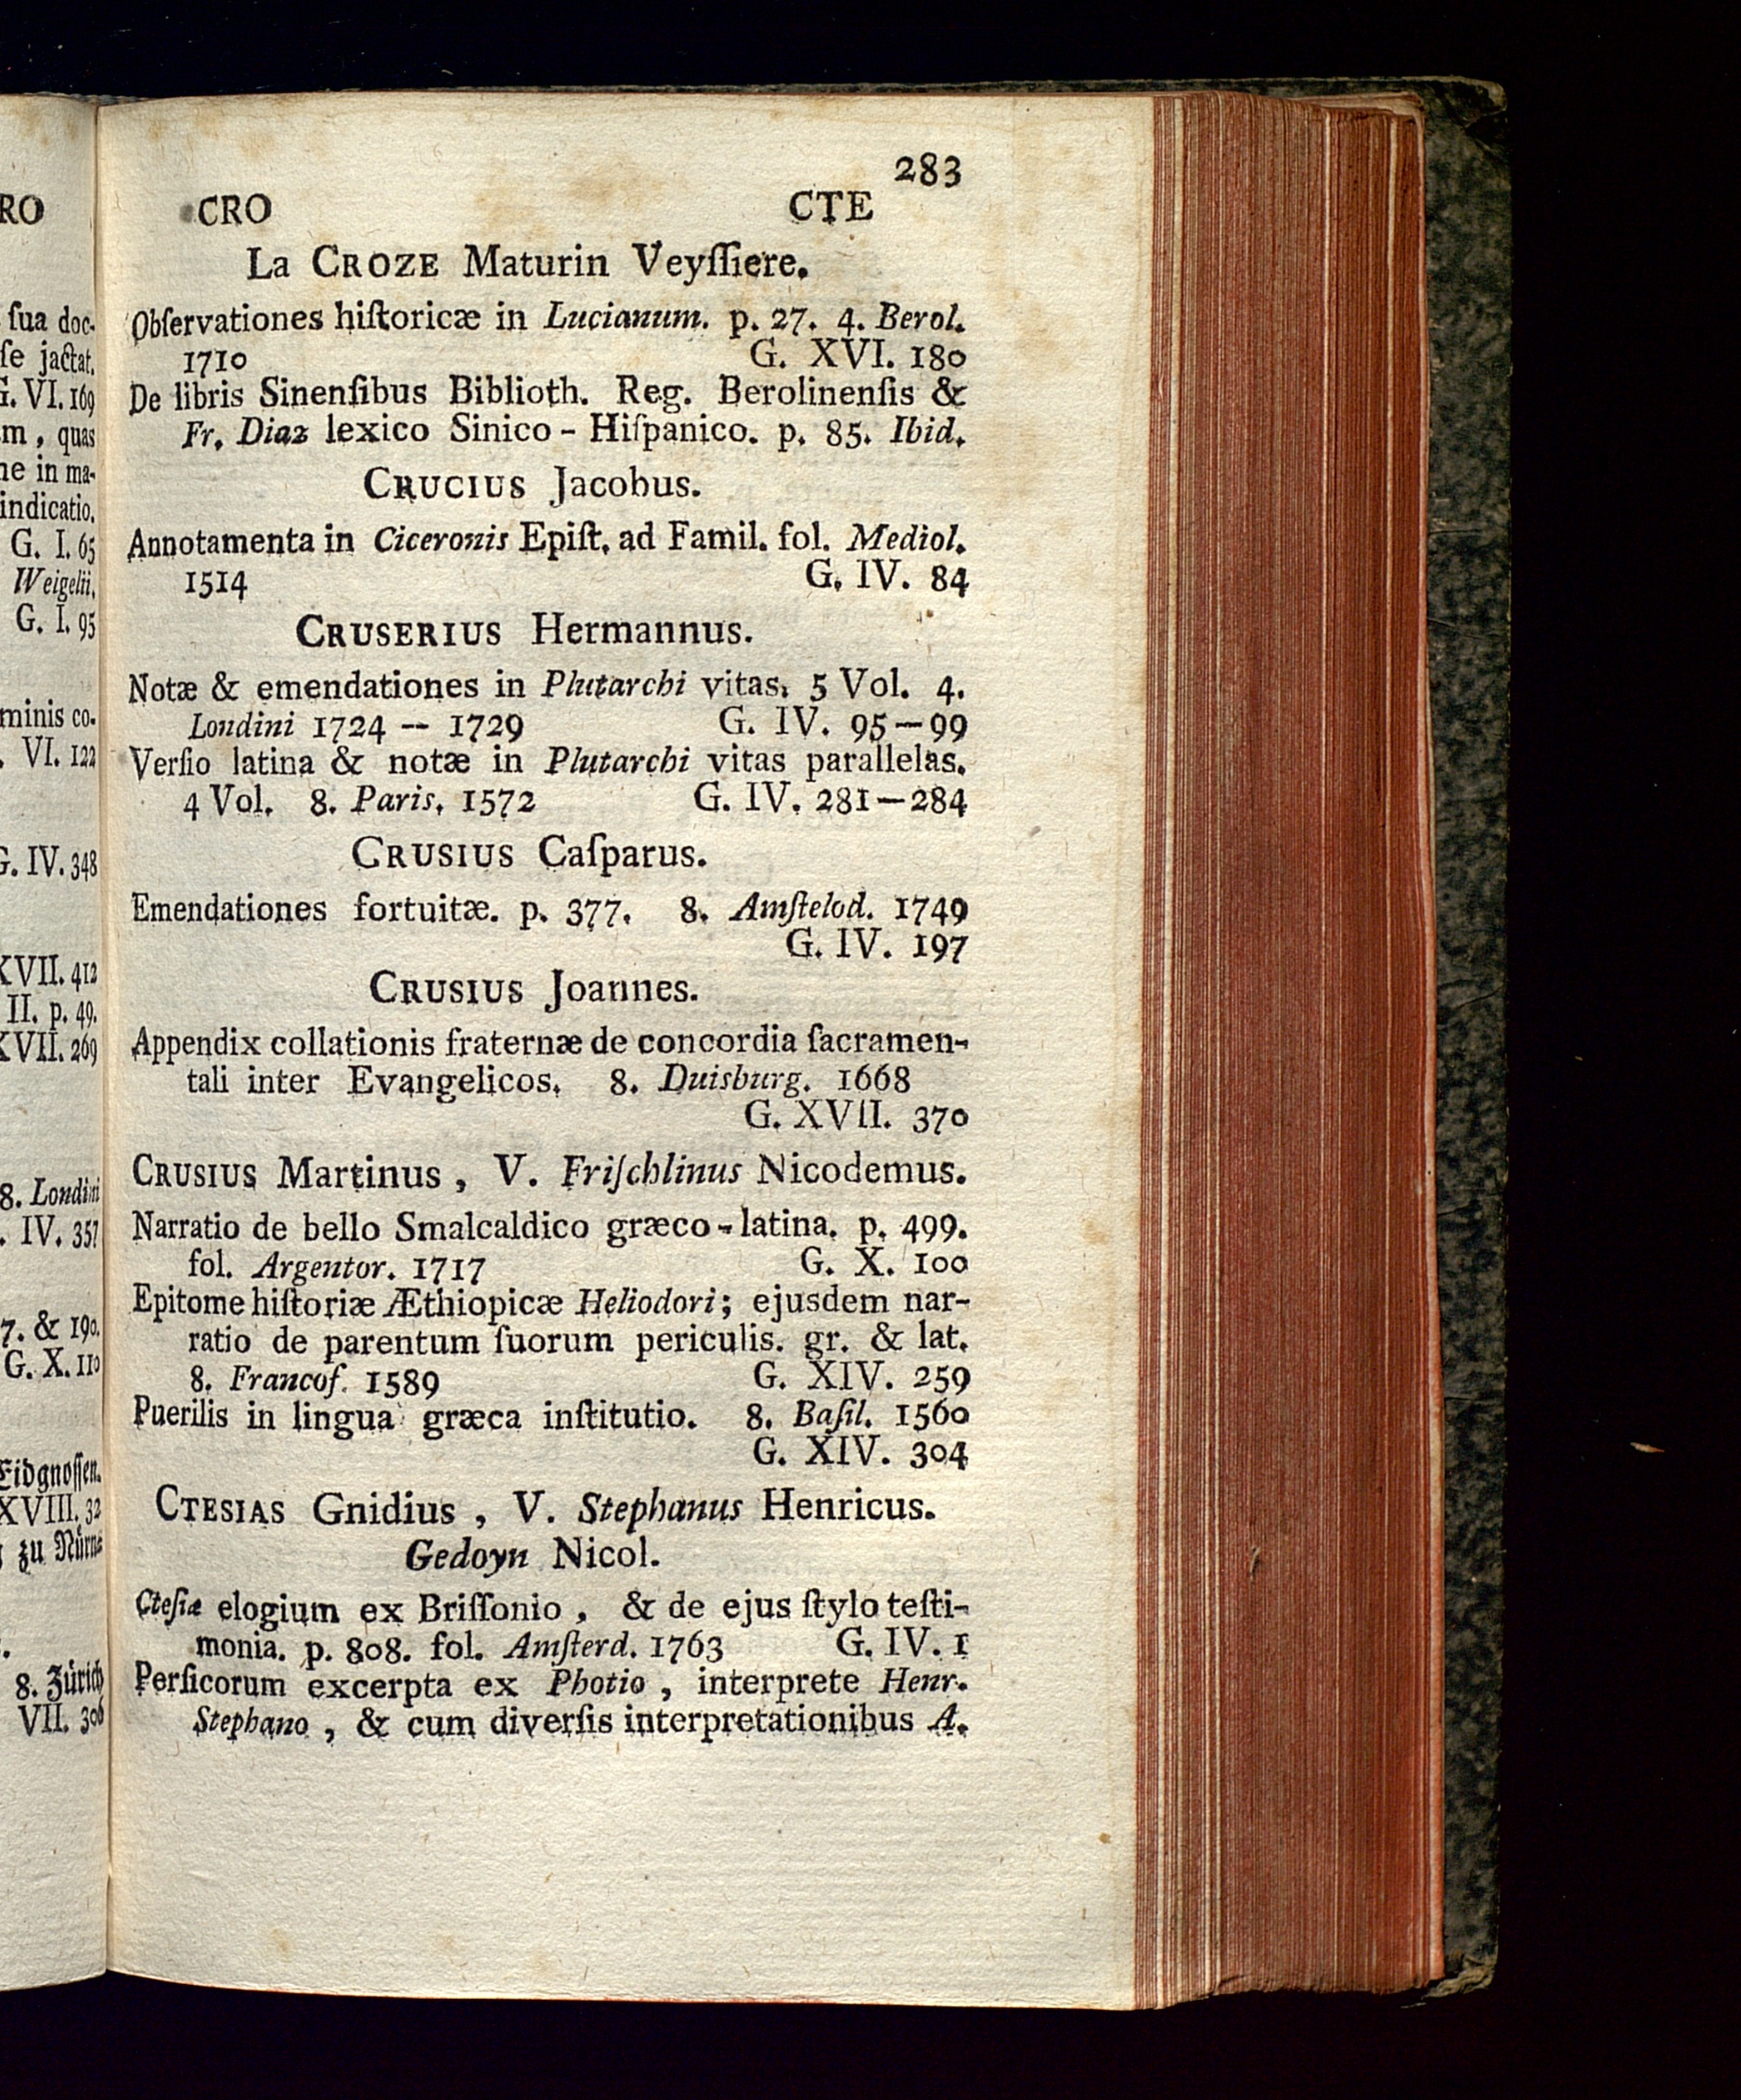 RO
sua doc-
se jactat.
G. VI. 169
m, quas
ne in ma-
indicatio.
G. I. 65
Weigelii.
G. I. 95
minis co-
. VI. 122
G. IV. 348
XVII. 412
II. p. 49.
XVII. 269
8. Londini
. IV. 357
7. & 190.
G. X. 110
Eidgnossen.
XVIII. 32
zu Nürn=
8. Zürich
VII. 306
283
CRO CTE
La CROZE Maturin Veyſſiere.
Obſervationes hiſtoricæ in Lucianum. p. 27. 4. Berol.
1710 G. XVI. 180
De libris Sinenſibus Biblioth. Reg. Berolinenſis &
Fr. Diaz lexico Sinico-Hiſpanico. p. 85. Ibid.
CRUCIUS Jacobus.
Annotamenta in Ciceronis Epiſt. ad Famil. fol. Mediol.
1514 G. IV. 84
CRUSERIUS Hermannus.
Notæ & emendationes in Plutarchi vitas. 5 Vol. 4.
Londini 1724 — 1729 G. IV. 95—99
Verſio latina & notæ in Plutarchi vitas parallelas.
4 Vol. 8. Paris. 1572 G. IV. 281—284
CRUSIUS Caſparus.
Emendationes fortuitæ. p. 377. 8. Amſtelod. 1749
G. IV. 197
CRUSIUS Joannes.
Appendix collationis fraternæ de concordia ſacramen-
tali inter Evangelicos. 8. Duisburg. 1668
G. XVII. 370
CRUSIUS Martinus, V. Friſchlinus Nicodemus.
Narratio de bello Smalcaldico græco-latina. p. 499.
fol. Argentor. 1717 G. X. 100
Epitome hiſtoriæ Æthiopicæ Heliodori; ejusdem nar-
ratio de parentum ſuorum periculis. gr. & lat.
8. Francof. 1589 G. XIV. 259
Puerilis in lingua græca inſtitutio. 8. Baſil. 1560
G. XIV. 304
CTESIAS Gnidius, V. Stephanus Henricus.
Gedoyn Nicol.
Cteſiæ elogium ex Briſſonio, & de ejus ſtylo teſti-
monia. p. 808. fol. Amſterd. 1763 G. IV. 1
Perſicorum excerpta ex Photio, interprete Henr.
Stephano, & cum diverſis interpretationibus A.